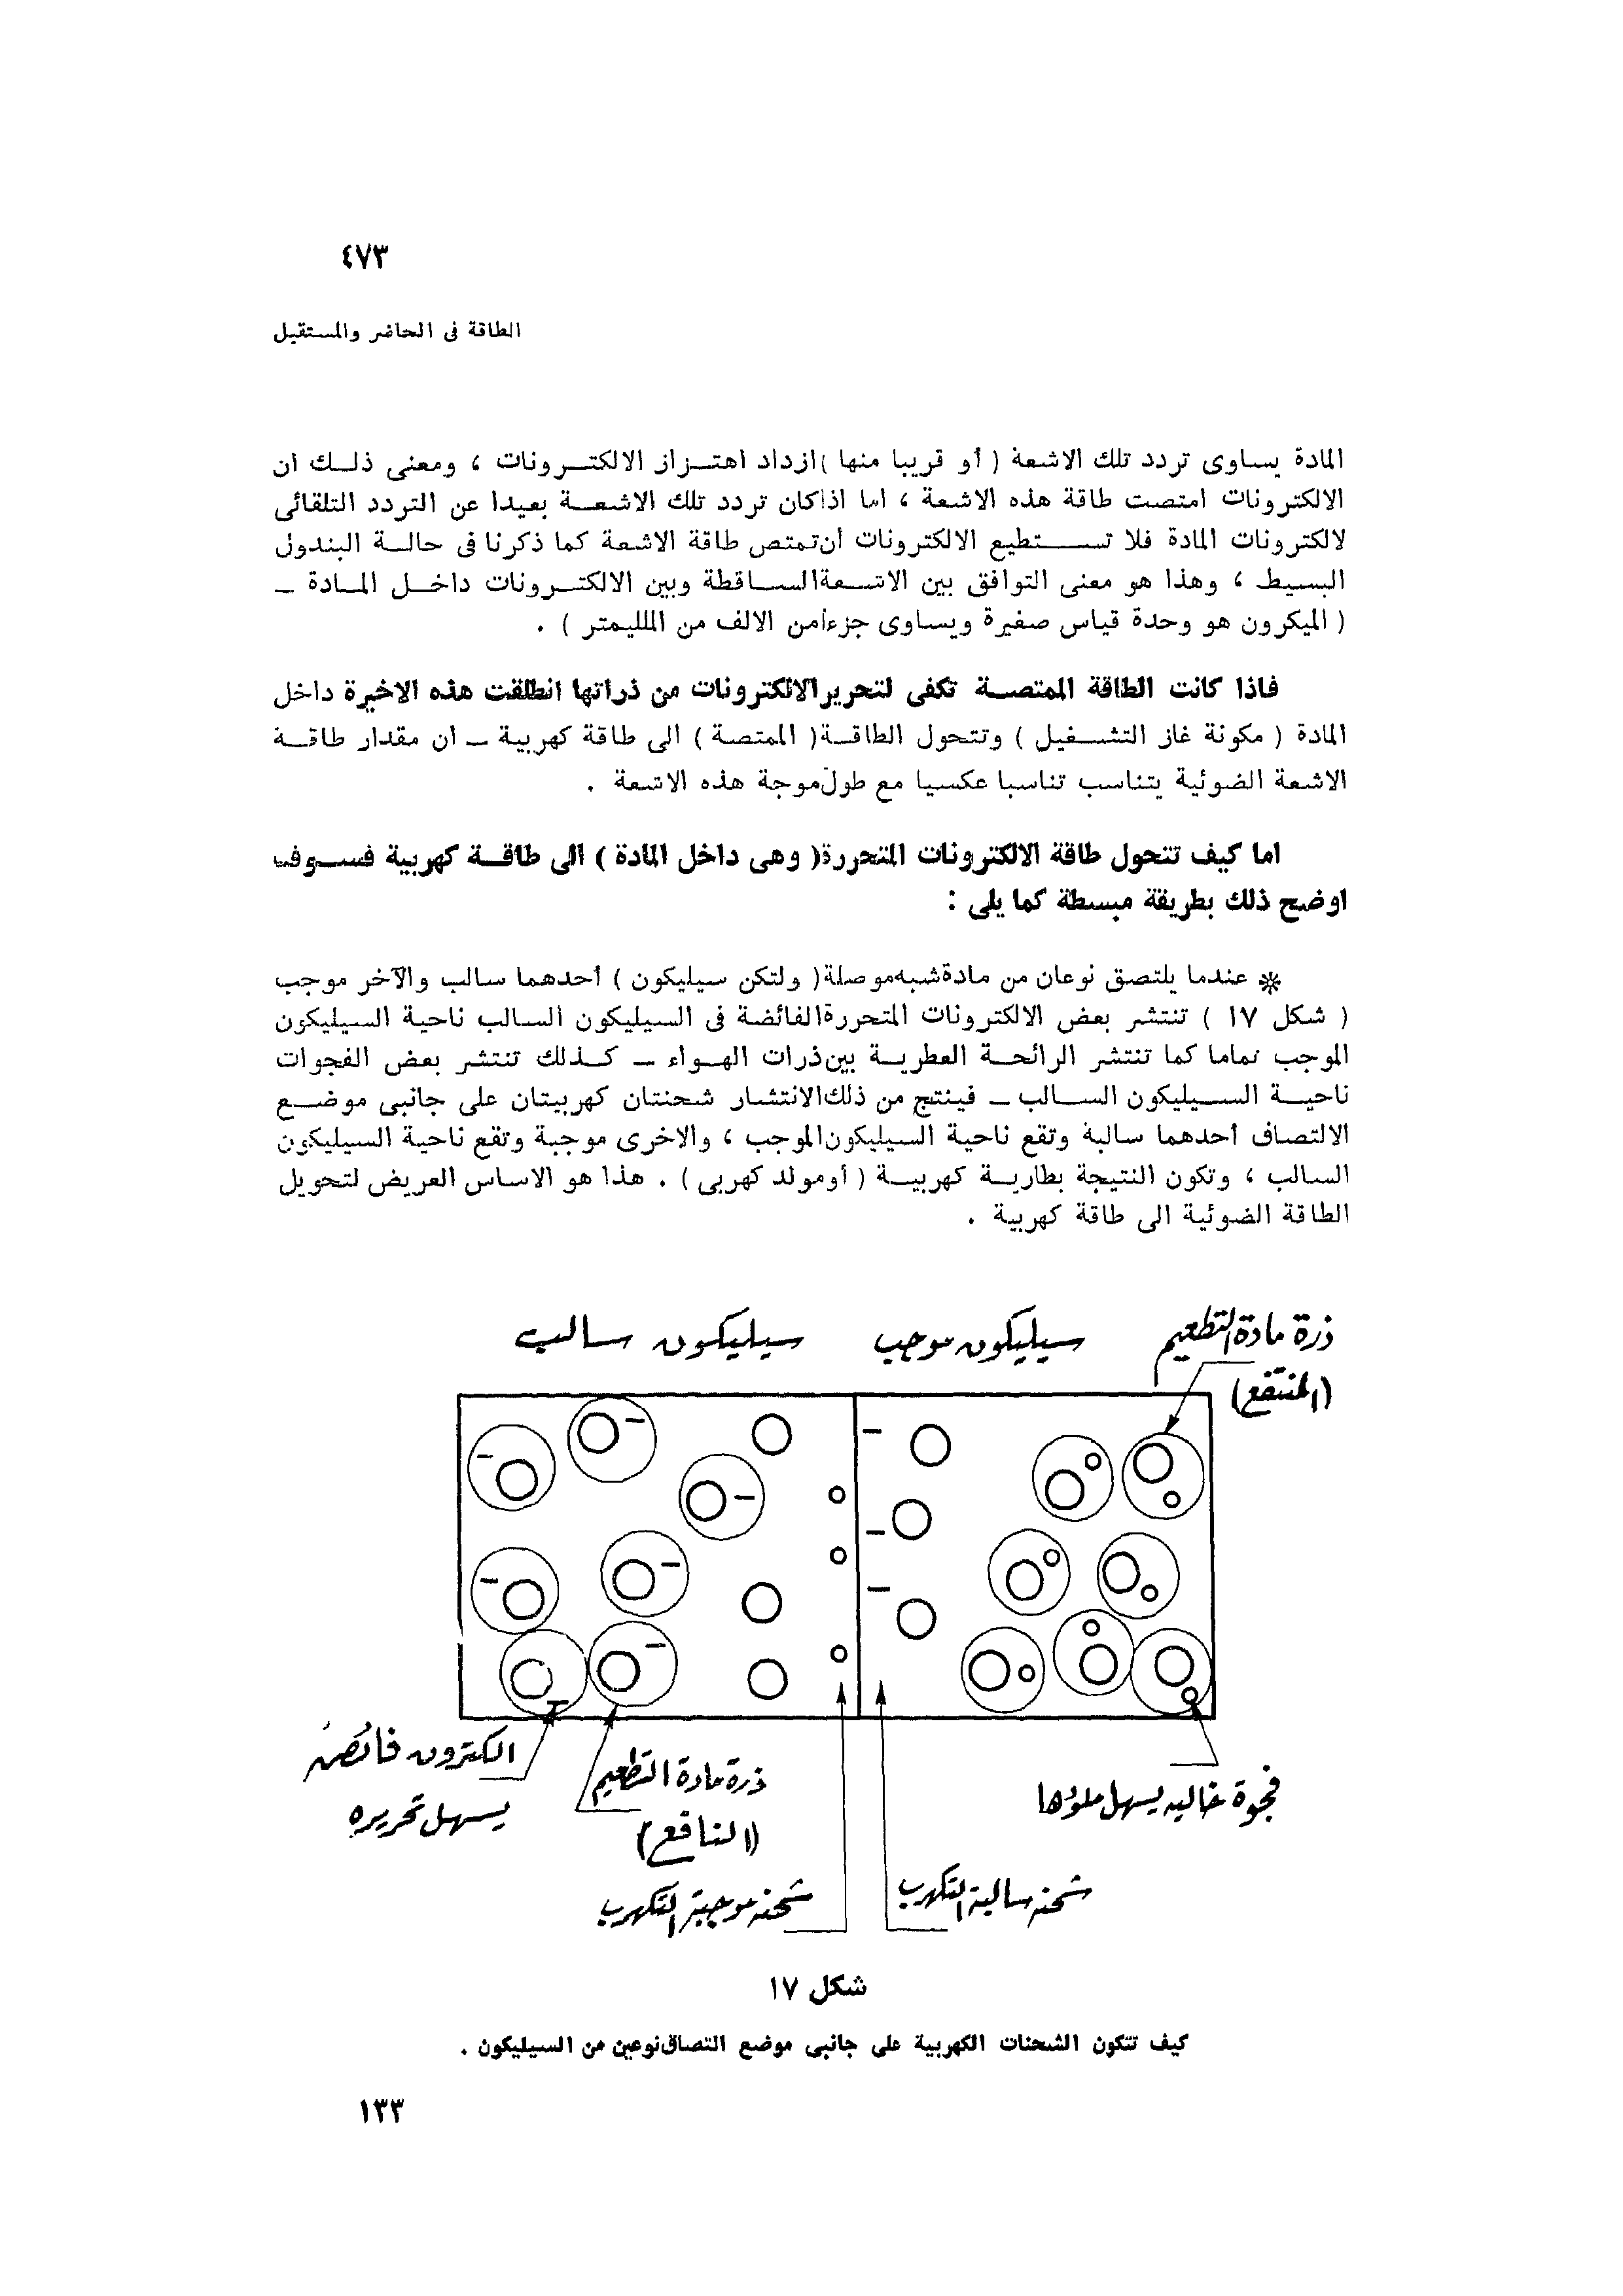 ٤٧٣
الطاقة فى الحاضر والمستقبل
المادة يساوى تردد تلك الاشعة ( أو قريبا منها ) ازداد اهتزاز الالكترونات ، ومعنى ذلك ان
الالكترونات امتصت طاقة هذه الاشعة ، اما اذا كان تردد تلك الاشعة بعيدا عن التردد التلقائى
لالكترونات المادة فلا تستطيع الالكترونات أن تمتص طاقة الاشعة كما ذكرنا فى حالة البندول
البسيط ، وهذا هو معنى التوافق بين الاشعة الساقطة وبين الالكترونات داخل المادة –
( الميكرون هو وحدة قياس صغيرة ويساوى جزءا من الالف من الملليمتر ) .
فاذا كانت الطاقة الممتصة تكفى لتحرير الالكترونات من ذراتها انطلقت هذه الاخيرة داخل
المادة ( مكونة غاز التشغيل ) وتتحول الطاقة ( الممتصة ) الى طاقة كهربية – ان مقدار طاقة
الاشعة الضوئية يتناسب تناسبا عكسيا مع طول موجة هذه الاشعة .
اما كيف تتحول طاقة الالكترونات المتحررة ( وهى داخل المادة ) الى طاقة كهربية فسوف
اوضح ذلك بطريقة مبسطة كما يلى :
* عندما يلتصق نوعان من مادة شبه موصلة ( ولتكن سيليكون ) أحدهما سالب والآخر موجب
( شكل ١٧ ) تنتشر بعض الالكترونات المتحررة الفائضة فى السيليكون السالب ناحية السيليكون
الموجب تماما كما تنتشر الرائحة العطرية بين ذرات الهواء – كذلك تنتشر بعض الفجوات
ناحية السيليكون السالب – فينتج من ذلك الانتشار شحنتان كهربيتان على جانبى موضع
الالتصاف أحدهما سالبة وتقع ناحية السيليكون الموجب ، والاخرى موجبة وتقع ناحية السيليكون
السالب ، وتكون النتيجة بطارية كهربية ( أو مولد كهربى ) . هذا هو الاساس العريض لتحويل
الطاقة الضوئية الى طاقة كهربية .
ذرة مادة التطعيم
(المنتفع)
سيليكون موجب
سيليكون سالب
فجوة خاليه يسهل ملؤها
ذرة مادة التطعيم
(النافع)
الكترون فائض
يسهل تحريره
شحنة سالبة التكهرب
شحنة موجبة التكهرب
شكل ١٧
كيف تتكون الشحنات الكهربية على جانبى موضع التصاق نوعين من السيليكون .
١٣٣